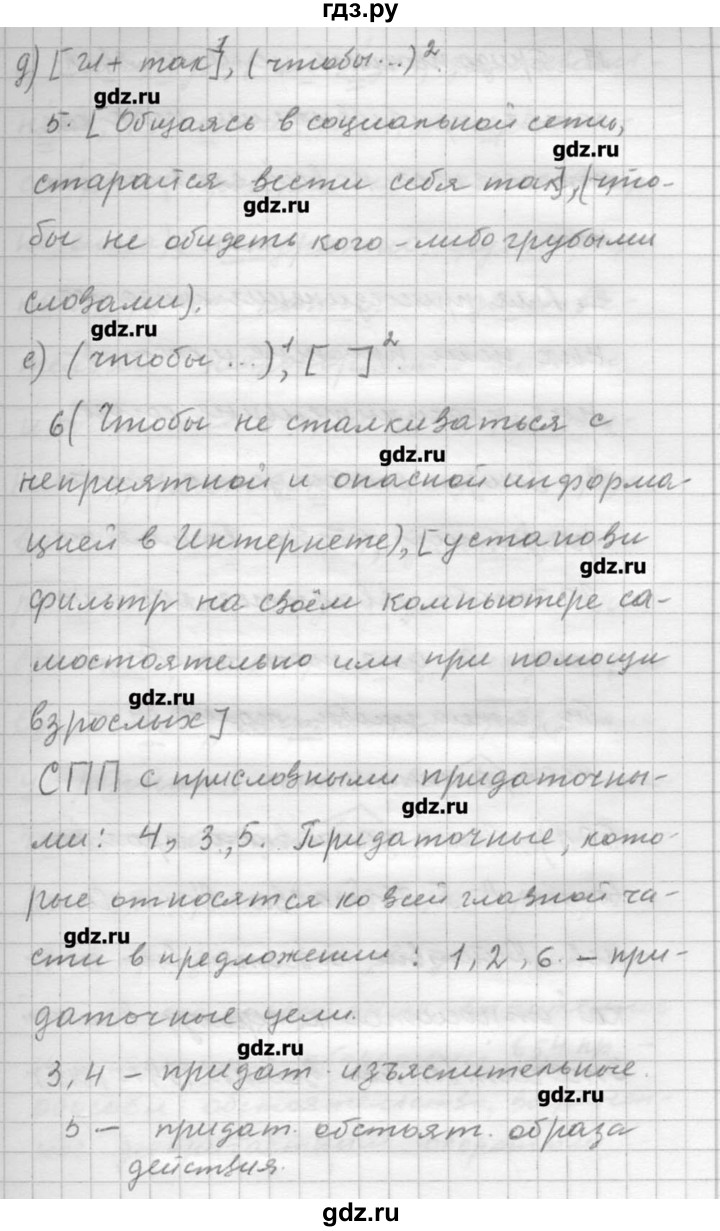 гдз.ру
д) [гл + так]¹, (чтобы...)².
gdz.ru
5. [Общаясь в социальной сети,
gdz.ru
старайся вести себя так], (что-
gdz.ru
бы не обидеть кого-либо грубыми
словами).
gdz.ru
е) (чтобы ...)¹, [ ]².
6 (Чтобы не сталкиваться с
gdz.ru
неприятной и опасной информа-
цией в Интернете), [установи
gdz.ru
фильтр на своём компьютере са-
мостоятельно или при помощи
gdz.ru
взрослых]
СПП с присловными придаточны-
gdz.ru
ми: 4, 3, 5. Придаточные, кото-
рые относятся ко всей главной ча-
gdz.ru
сти в предложении: 1, 2, 6. – при-
даточные цели.
gdz.ru
3, 4 – придат. изъяснительные.
gdz.ru
5 – придат. обстоят. образа
действия.
gdz.ru